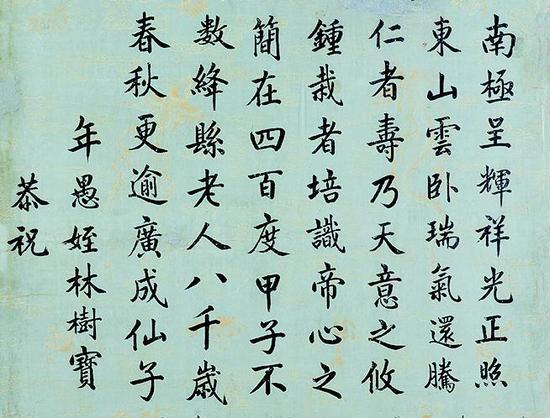 南極呈輝祥光正照
東山雲卧瑞氣還騰
仁者壽乃天意之攸
鍾栽者培識帝心之
簡在四百度甲子不
數絳縣老人八千歲
春秋更逾廣成仙子
年愚姪林樹寶
恭祝